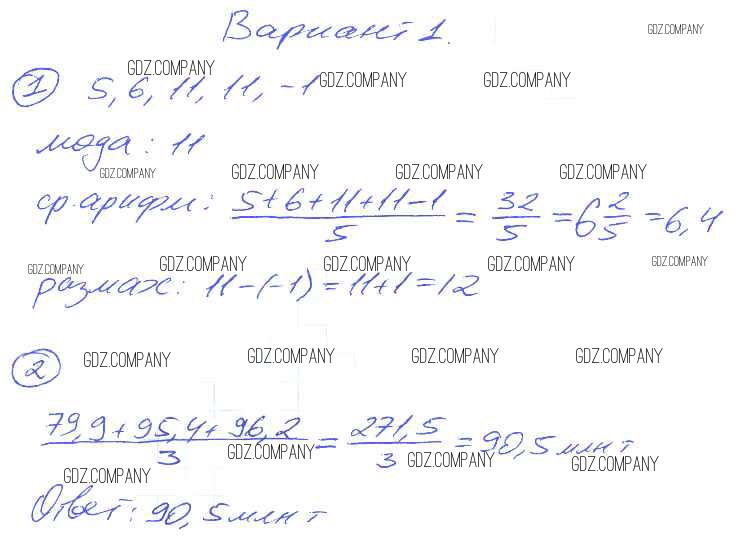 Вариант 1.
GDZ.COMPANY
GDZ.COMPANY GDZ.COMPANY GDZ.COMPANY
1 5, 6, 11, 11, -1
мода: 11
GDZ.COMPANY GDZ.COMPANY GDZ.COMPANY GDZ.COMPANY
ср.арифм: (5+6+11+11-1)/5 = 32/5 = 6 2/5 = 6,4
GDZ.COMPANY GDZ.COMPANY GDZ.COMPANY GDZ.COMPANY GDZ.COMPANY
размах: 11-(-1)=11+1=12
2 GDZ.COMPANY GDZ.COMPANY GDZ.COMPANY GDZ.COMPANY
(79,9+95,4+96,2)/3 = 271,5/3 = 90,5 млн т
GDZ.COMPANY GDZ.COMPANY GDZ.COMPANY GDZ.COMPANY
Ответ: 90,5 млн т